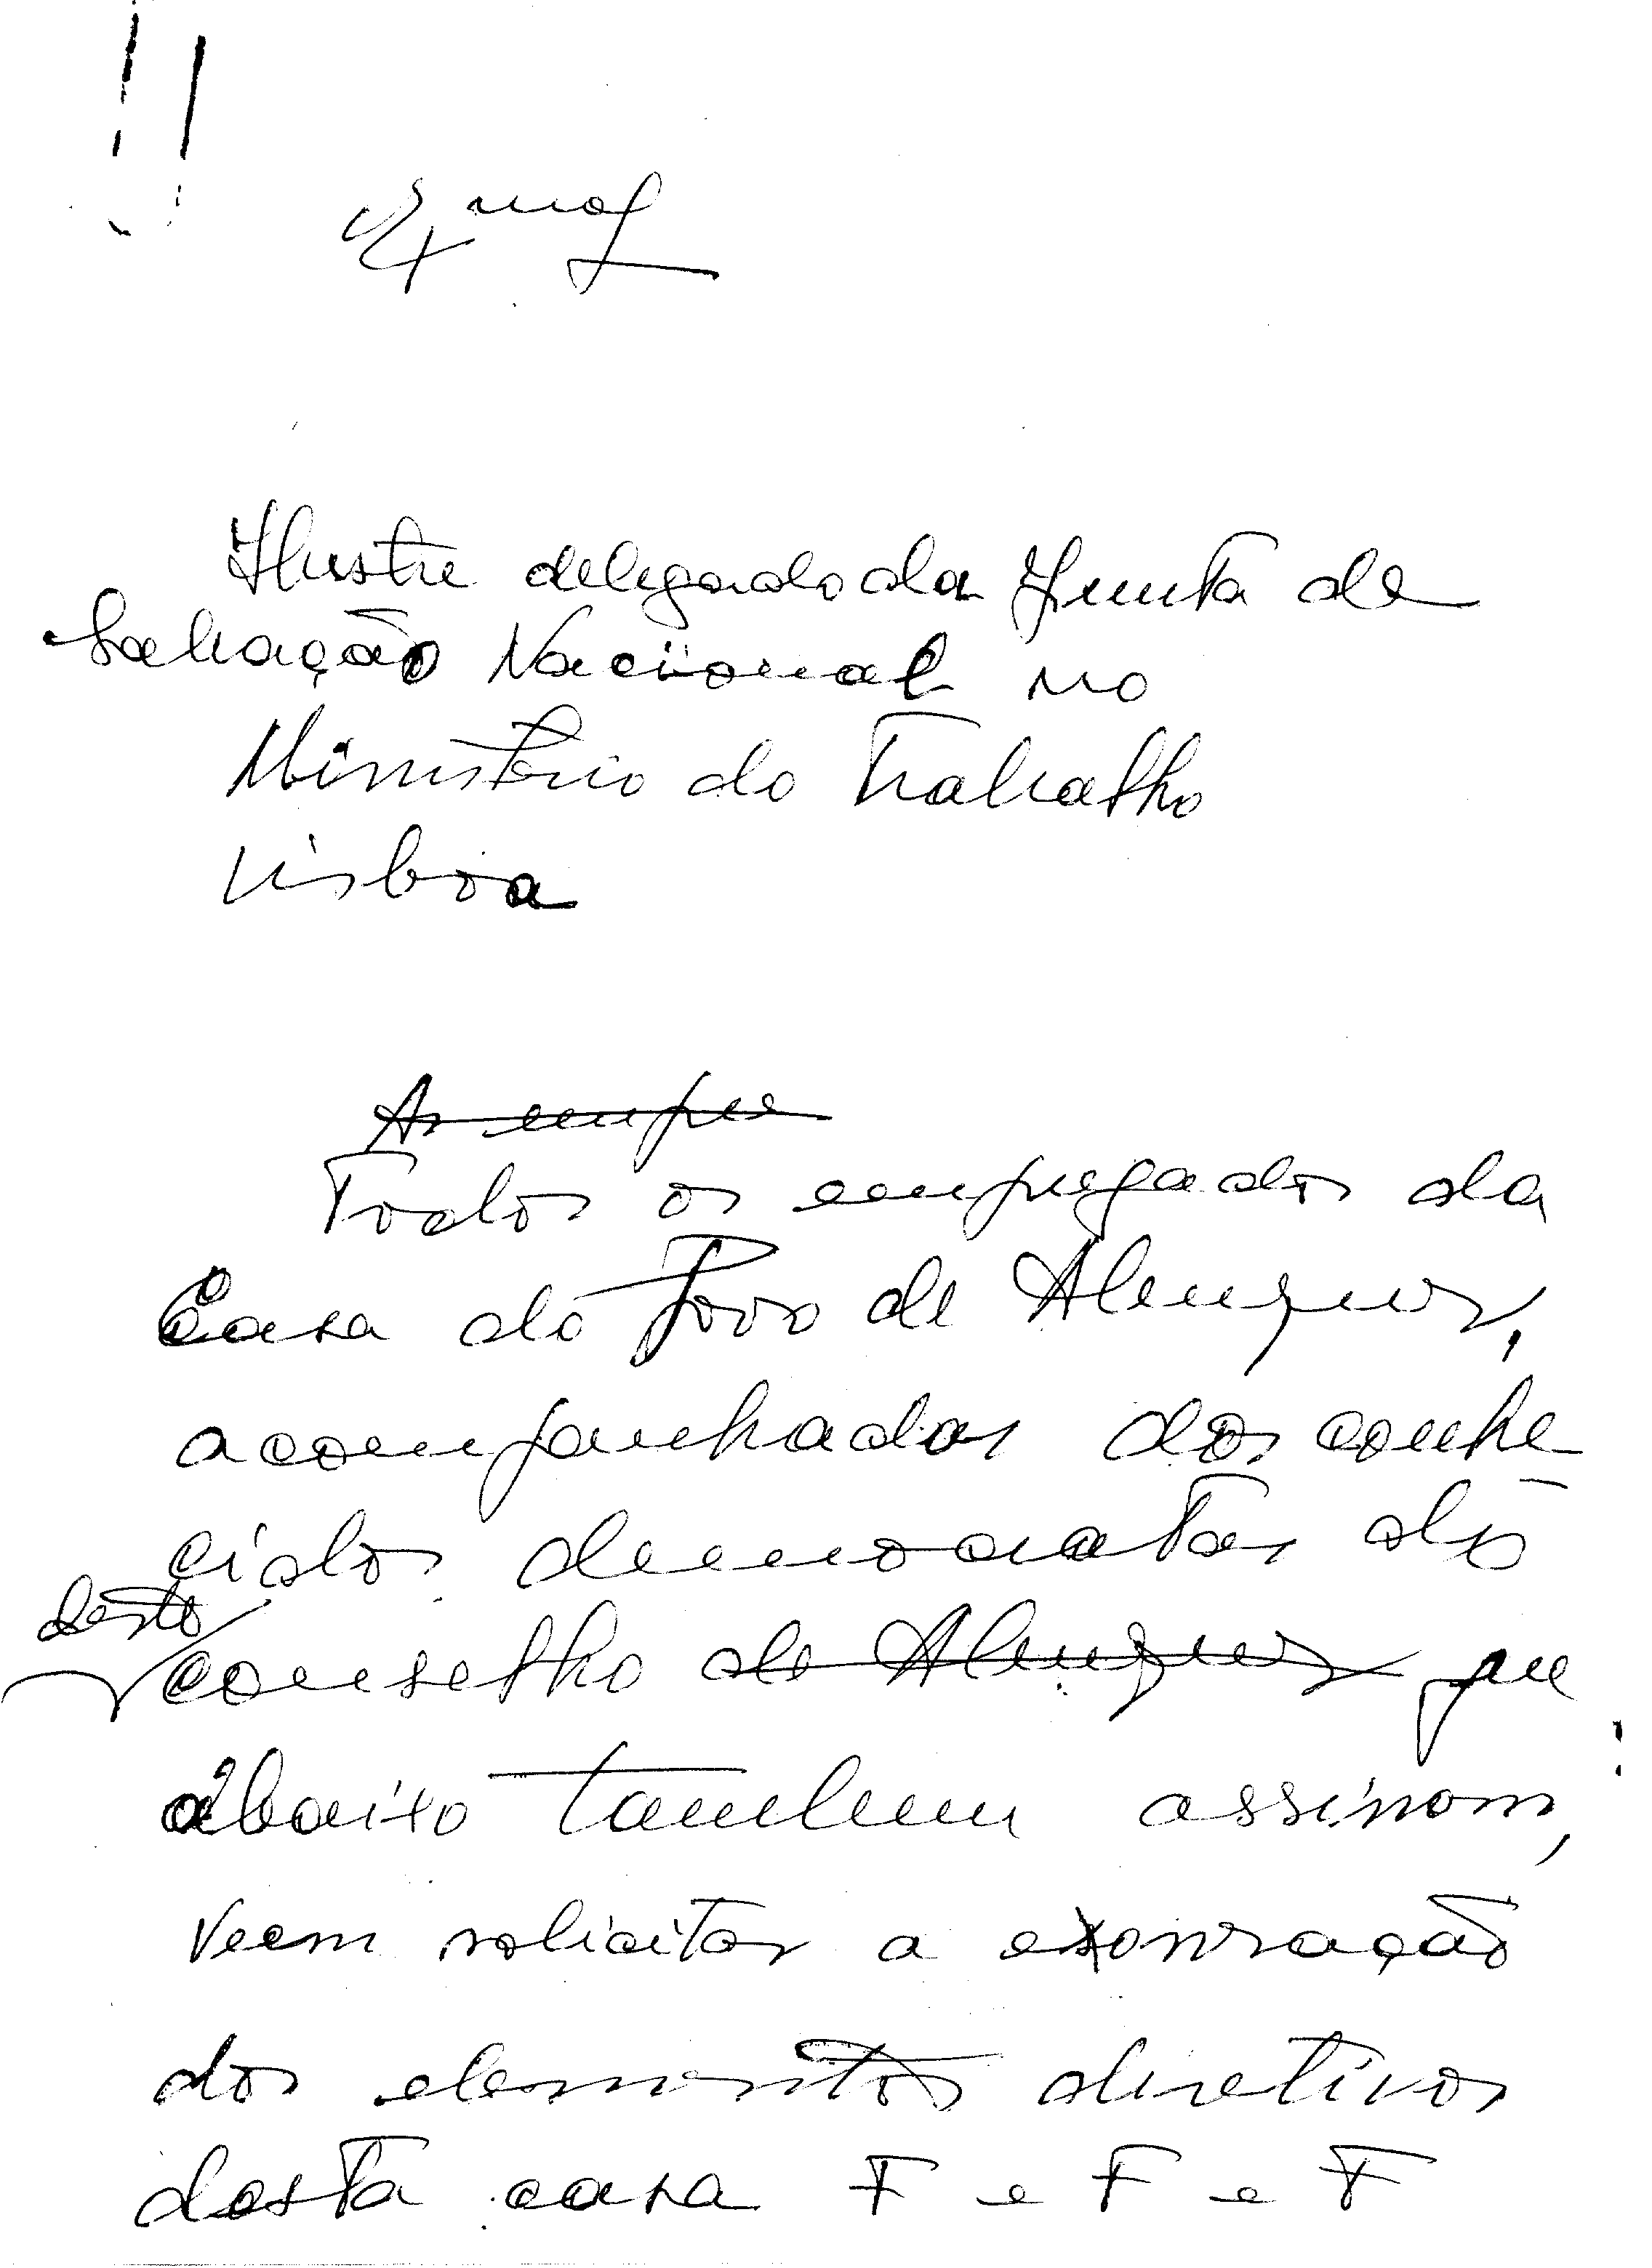 Ilustre delegado da Junta de
Salvação Nacional no
Ministério do Trabalho
Lisboa
Os empre
Todos os empregados da
Casa do Povo de Alenquer,
acompanhados dos conhe
cidos democratas do
deste
conselho de Alenquer que
abaixo tambem assinam,
veem solicitar a exonração
dos elementos diretivos
desta casa F e F e F